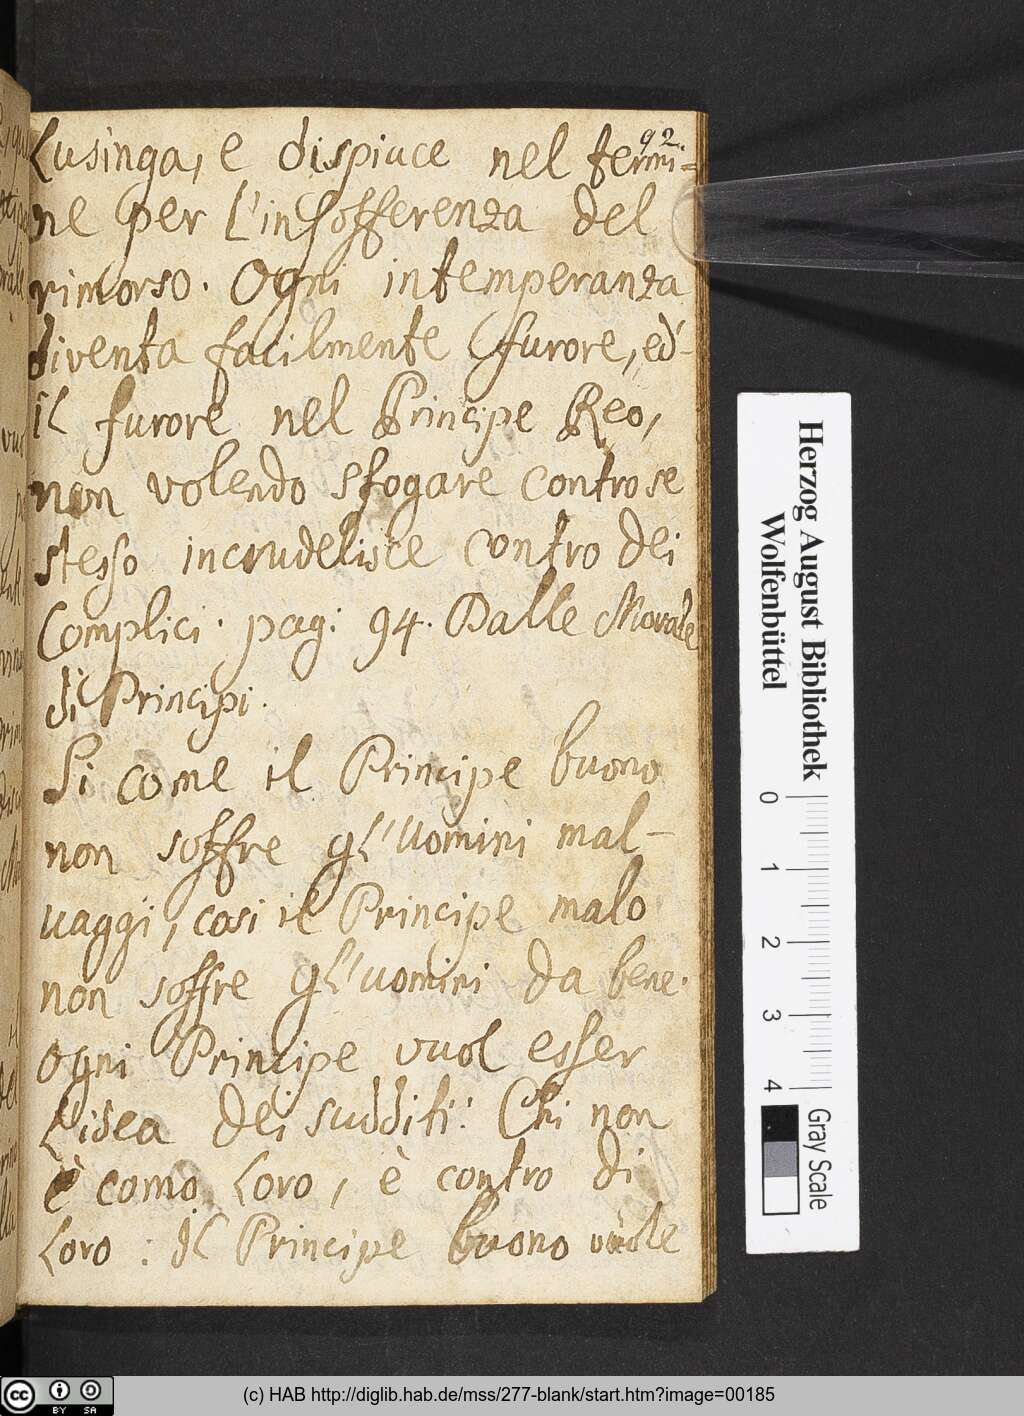 92.
Lusinga, e dispiace nel termi-
ne per L'insofferenza del
rimorso. Ogni intemperanza
diventa facilmente furore, ed-
il furore nel Principe Reo,
non volendo sfogare contro se
stesso incrudelisce contro dei
Complici. pag: 94. Dalle Morale
di Principi.
Si come il Principe buono
non soffre gl'uomini mal-
uaggi, cosi il Principe malo
non soffre gl'uomini da bene.
Ogni Principe vuol esser
L'idea dei sudditi: Chi non
è como Loro, è contro di
Loro: Il Principe buono vuole
Herzog August Bibliothek
Wolfenbüttel
0 1 2 3 4
Gray Scale
cc BY SA
(c) HAB http://diglib.hab.de/mss/277-blank/start.htm?image=00185